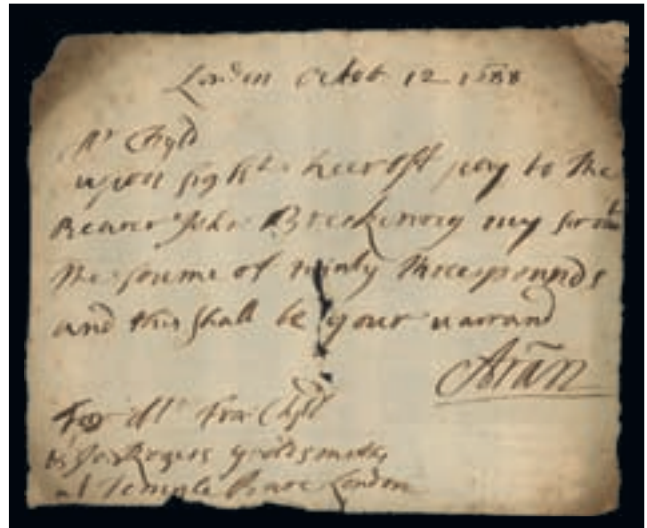 London Octob 12 1688
Mr Chyld
upon sight heeroff pay to the
Bearer John my
the soume of ninty three pounds
and this shall be your warrand
Arran
For Mr Fra Chyld
& Jo Rogers goldsmiths
at Temple Barr London